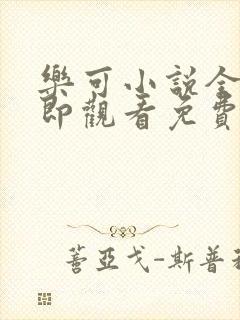 樂可小說全
即觀看免費
蓍亞戈-斯普